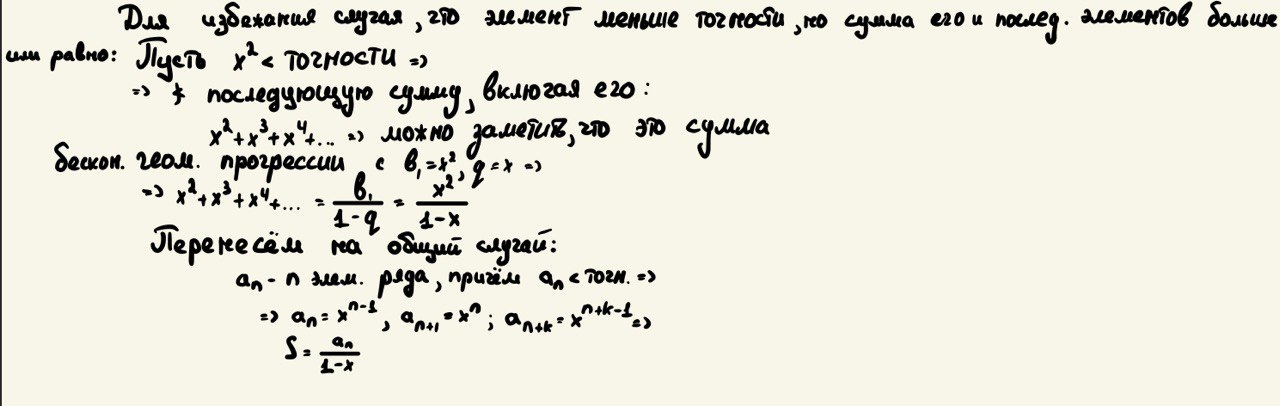 Для избежания случая, что элемент меньше точности, но сумма его и послед. элементов больше
или равно: Пусть x² < точности =>
=> последующую сумму, включая его:
x²+x³+x⁴+... => можно заметить, что это сумма
бескон. геом. прогрессии с b₁=x², q=x =>
=> x²+x³+x⁴+... = b₁/(1-q) = x²/(1-x)
Перенесём на общий случай:
aₙ - n элем. ряда, причём aₙ < точн. =>
=> aₙ = xⁿ⁻¹, aₙ₊₁ = xⁿ; aₙ₊ₖ = xⁿ⁺ᵏ⁻¹ =>
S = aₙ/(1-x)